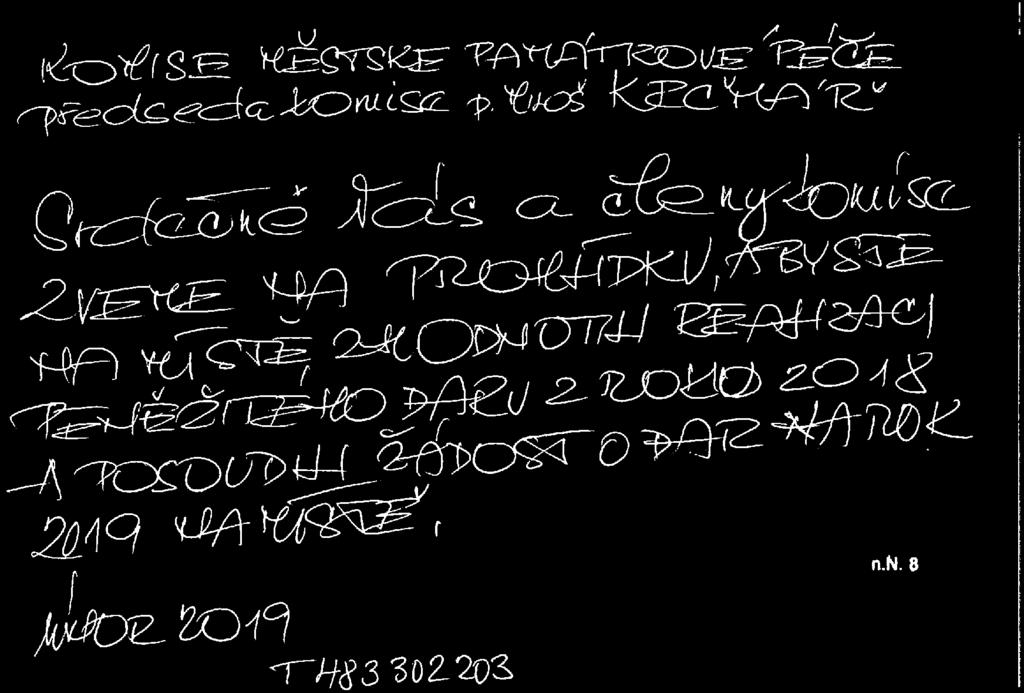 KOMISE MĚSTSKE PAMÁTKOVE PÉČE
předseda komise p. Miloš KRČMÁŘ
Srdečně Vás a členy komise
ZVEME NA PROHLÍDKU, ABYSTE
NA MÍSTĚ, ZHODNOTILI REALIZACI
PENĚŽITÉHO DARU Z ROKU 2018
A POSOUDILI ŽÁDOST O DAR NA ROK
2019 NA MÍSTĚ.
n.N. 8
ÚNOR 2019
T 483 302 203